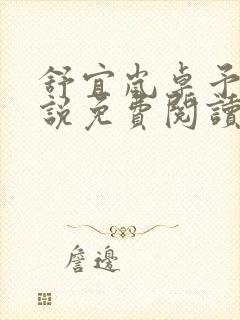 舒宜嵐卓予
說免費閱讀
詹邊